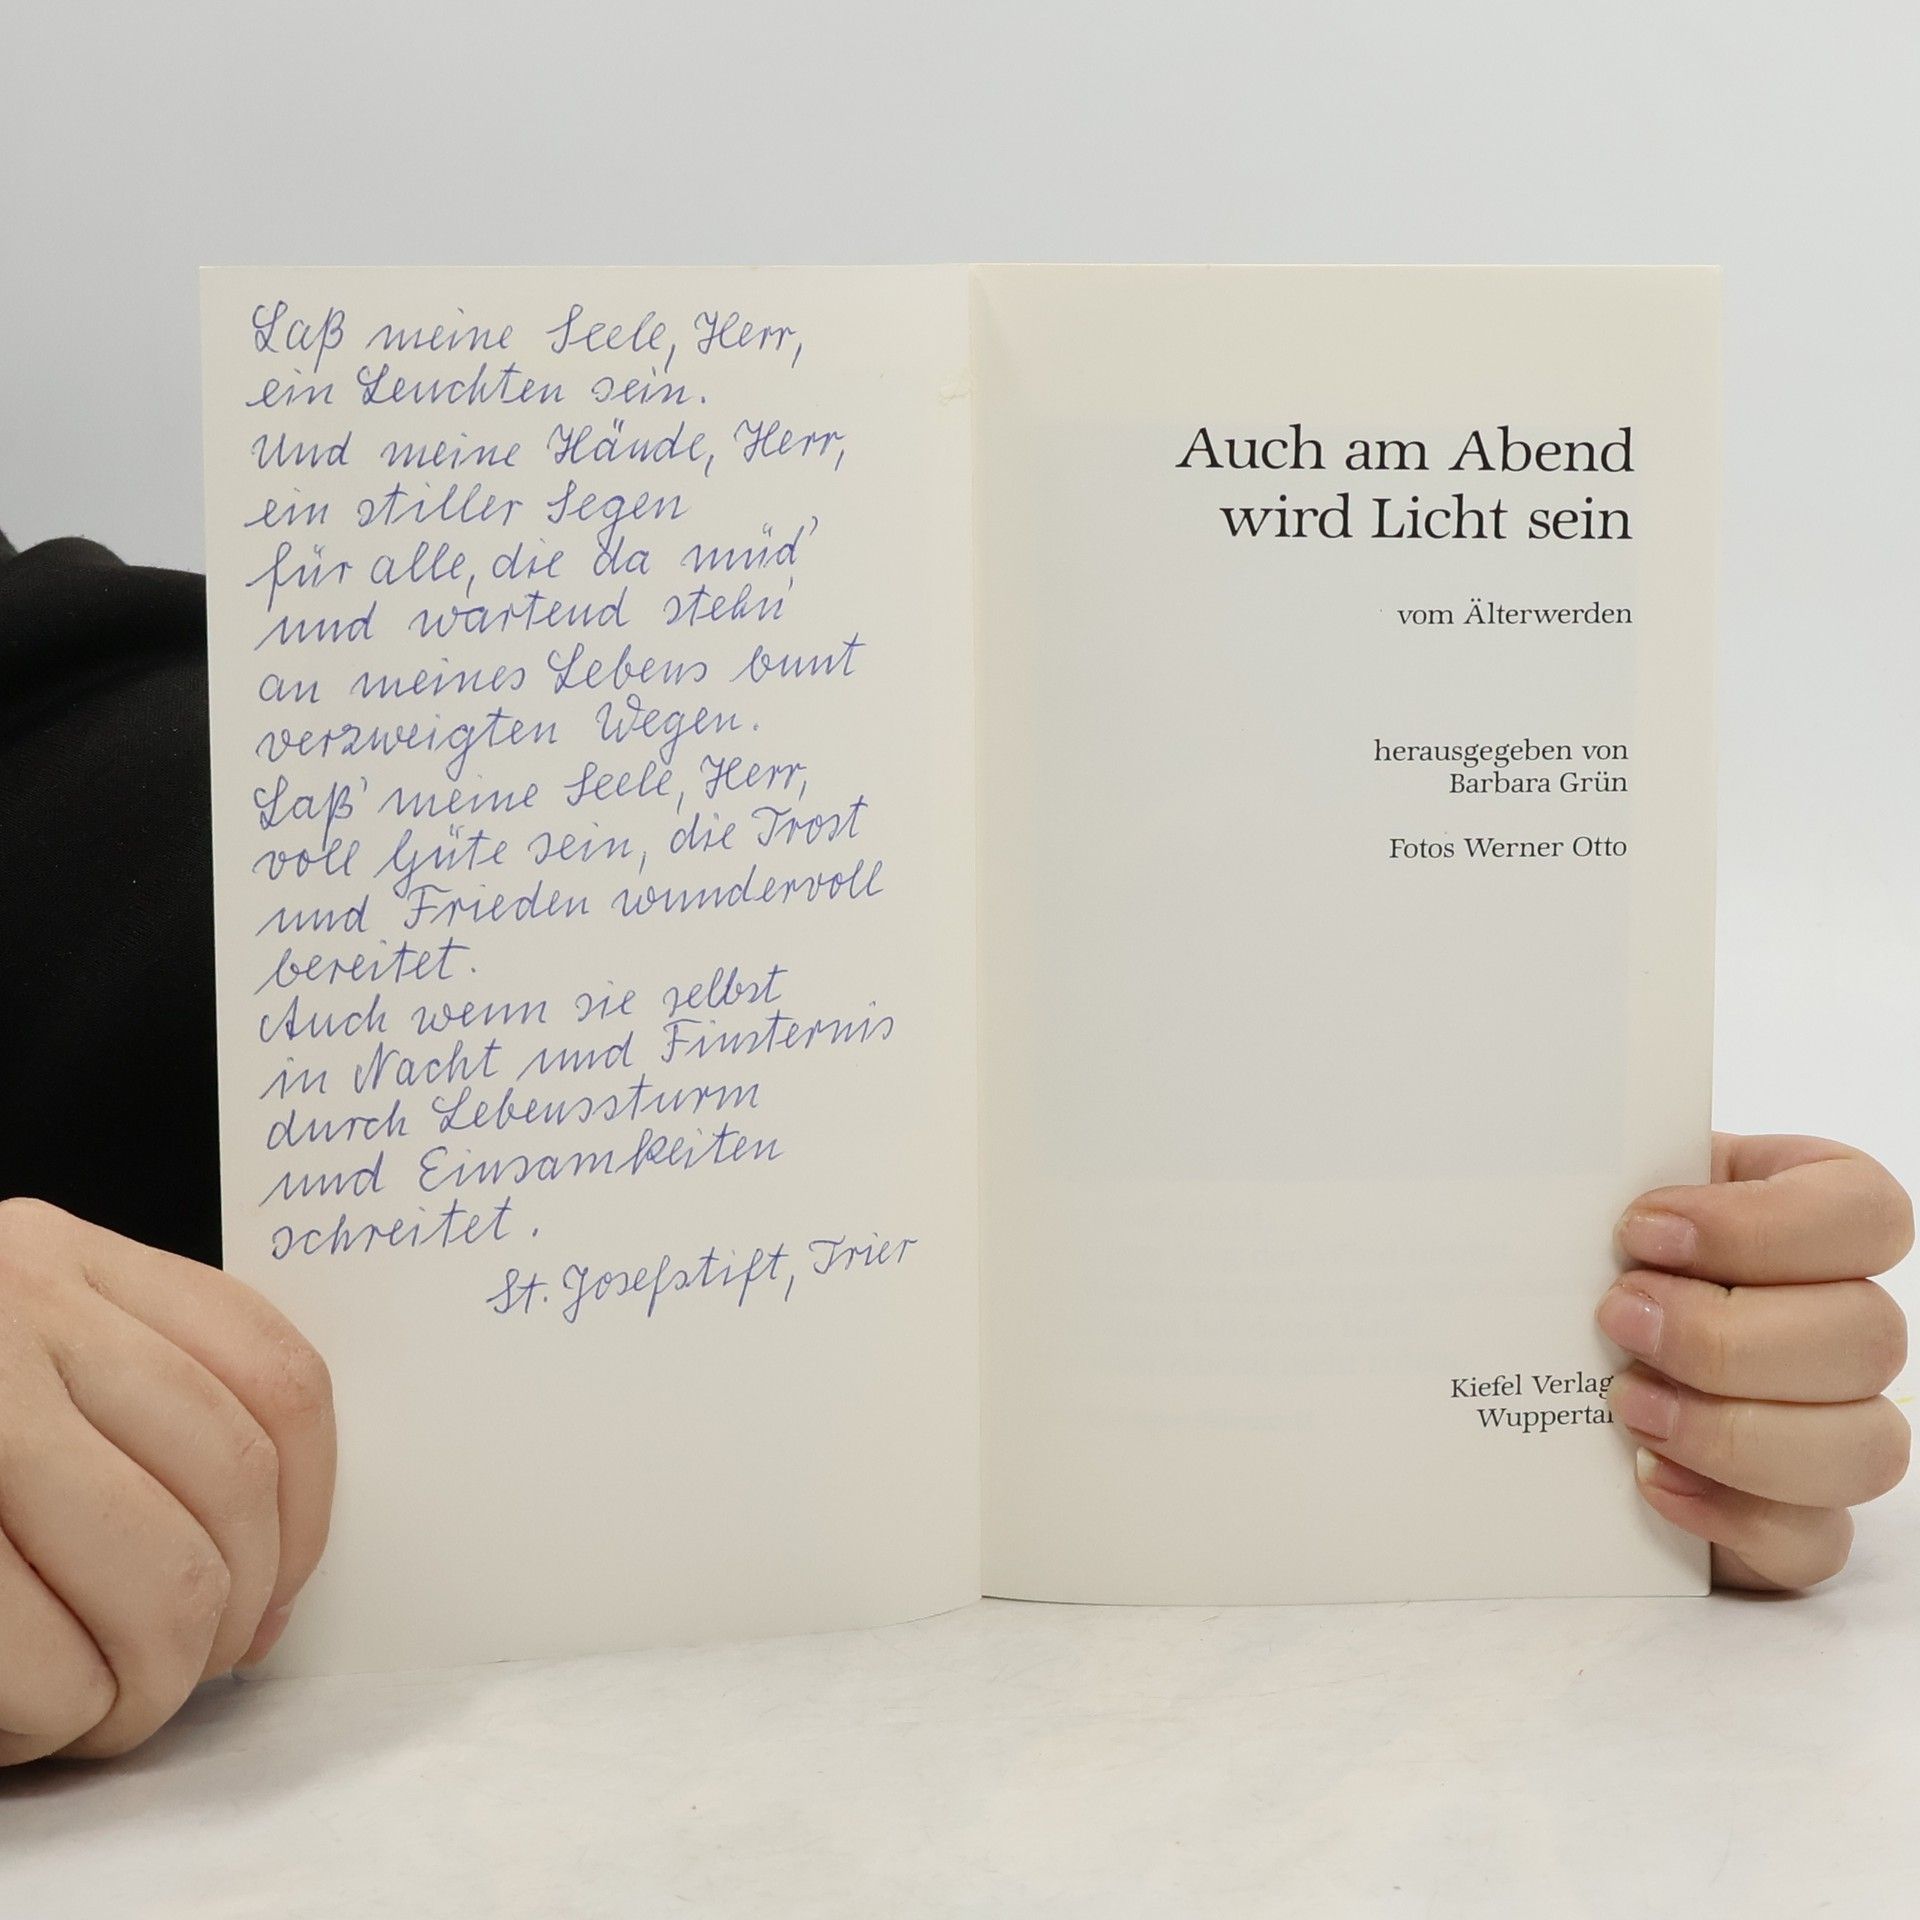 Laß meine Seele, Herr,
ein Leuchten sein.
Und meine Hände, Herr,
ein stiller Segen
für alle, die da müd'
und wartend stehn'
an meines Lebens bunt
verzweigten Wegen.
Laß' meine Seele, Herr,
voll Güte sein, die Trost
und Frieden wundervoll
bereitet.
Auch wenn sie selbst
in Nacht und Finsternis
durch Lebenssturm
und Einsamkeiten
schreitet.
St. Josefstift, Trier
Auch am Abend
wird Licht sein
vom Älterwerden
herausgegeben von
Barbara Grün
Fotos Werner Otto
Kiefel Verlag
Wuppertal